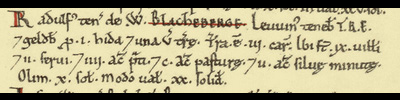 Radulf ten̄ de .W. BLACHEBERGE. Leuuin' teneb̄ T.R.E.
⁊ geld̄b ꝓ .I. hida ⁊ una v̄ træ. Tra.ē .III. car̄. Ibi st̄ .IX. uilli
⁊ II. serui. ⁊ IIII. ac̄ p̄ti. ⁊ c. ac̄ pasturæ. ⁊ II. ac̄ siluæ minutæ.
Olim .X. sol'. modo ual' .XX. solid̄.